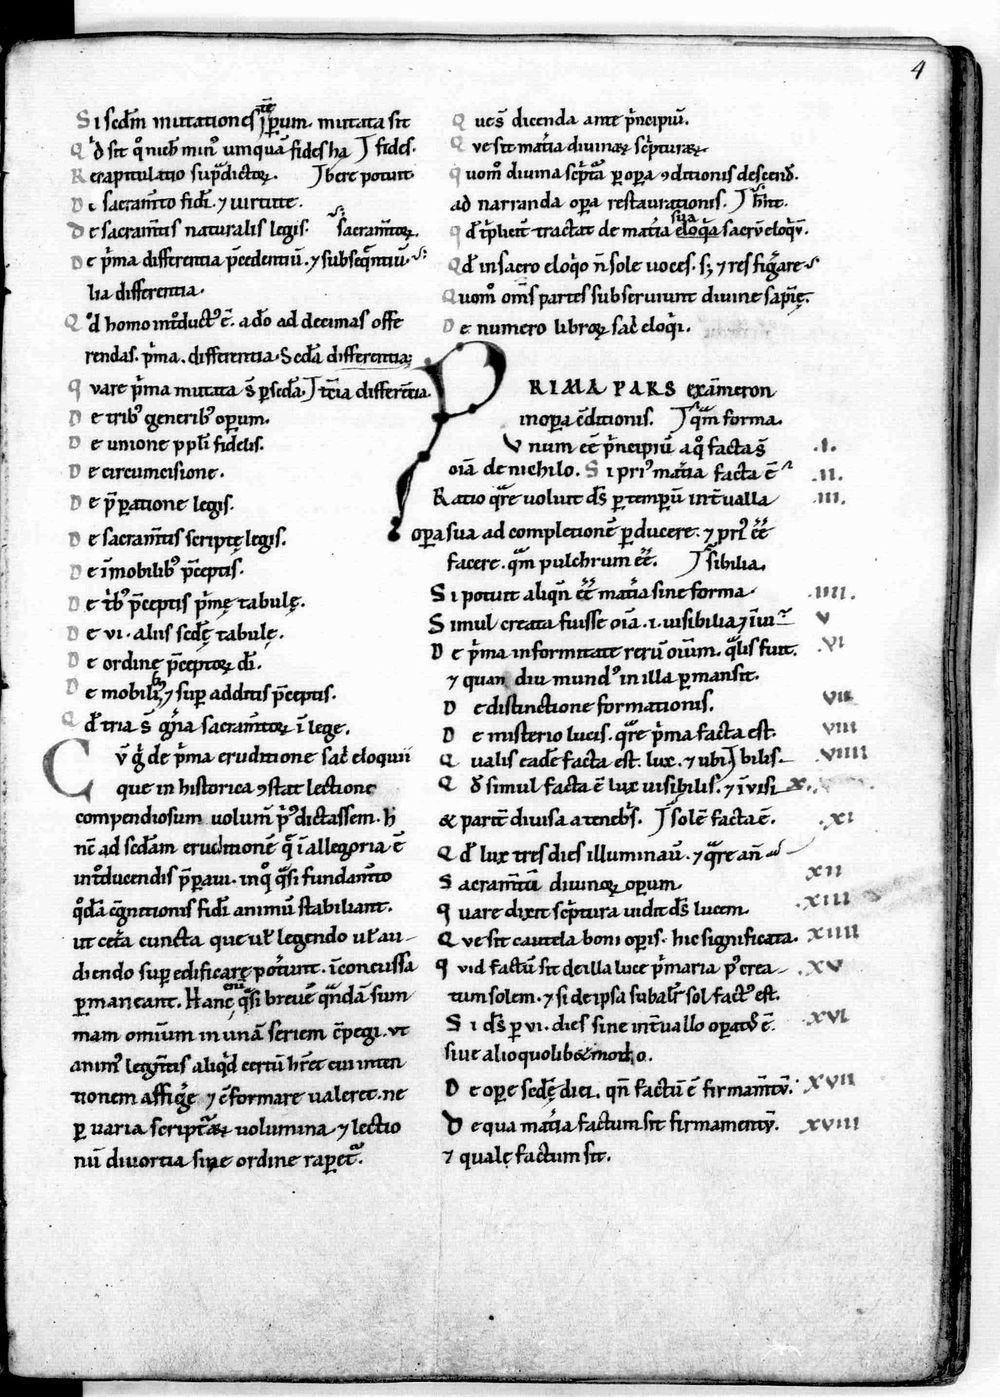 4
Si sedm mutationes ip̄rum. mutata sit
Qd sit qd nichil min' umquā fides ha⌡fides.
Recapitulatio sup̄dictoꝝ. ⌡bere potuit
De sacram̄to fidī. ⁊ uirtute.
De sacram̄tis naturalis legis. sacram̄toꝝ.
De p̄ma differentia p̄cedentiū. ⁊ subseq̄ntiū
lia differentia.
Qd homo int̄duct' ē. ad dō ad decimas offe
rendas. p̄ma. differentia. Scdā differentia;
Quare p̄ma mutata ē p̄ scdā. ⌡tc̄ia differēt̄ia.
De trib' generib' operum.
De unione ppl̄i fidelis.
De circumcisione.
De p̄paratione legis.
De sacram̄tis scriptę legis.
De īmobilib' p̄ceptis.
De t̄b' p̄ceptis p̄mę tabulę.
De vi. aliis scdę̄ tabulę.
De ordine p̄ceptoꝝ dī.
De mobilib; ⁊ sup additis p̄ceptis.
Qd tria s̄ gn̄a sacram̄toꝝ ī lege.
Cū ḡ de p̄ma eruditione sac̄ eloquii
que in historica ꝯstat lectione
compendiosum uolum̄ p̄' dictassem. h̄
nc̄ ad scdam eruditionē q̄ ī allegoria ē
int̄ducendis p̄paui. in q̄ q̄si fundam̄to
q̄dā c̄gnitionis fidī animū stabiliant.
ut cet̄a cuncta que ul̄ legendo ul̄ au-
diendo sup edificare pot̄unt. īconcussa
permaneant. Hanc eni q̄si breuē q̄ndā sum
mam omiūm in unā seriem c̄pegi. ut
anim' leḡntis aliq̄d certū h̄ret cui inten
tionem affiḡe ⁊ c̄formare ualeret. ne
ꝑ uaria scripturaꝝ uolumina ⁊ lectio
nū diuortia sine ordine rapet̄.
Que s̄ dicenda ante p̄ncipiū.
Que sit mat̄ia diuinaꝝ sc̄pturaꝝ.
Quom̄ diuina sc̄pt̄a ꝑ opa ꝯditionis descend̄.
ad narranda opa restaurationis. ⌡h̄nt.
Qd t̄plicit̄ tractat de mat̄ia sua eloq̄a sacrū eloq̄ū.
Qd in sacro eloq̄o n̄ sole uoces. s; ⁊ res fiḡare
Quom̄ om̄s partes subseruiunt diuine sapīę.
De numero libroꝝ sac̄ eloq̄i.
PRIMA PARS exameron
in opa c̄ditionis. ⌡q̄m forma.
Vnum ēē p̄ncipiū a q̄ facta s̄ .I.
oīa de nichilo. Si pri' mat̄ia facta ē .II.
Ratio q̄re uoluit ds̄ ꝑ tempū int̄ualla .III.
opa sua ad completionē ꝑducere. ⁊ pri' ēē
facere. q̄m pulchrum ēē. ⌡sibilia.
Si potuit aliqn̄ ēē mat̄ia sine forma. .IIII.
Simul creata fuisse oīa. i. uisibilia ⁊ īui V
De p̄ma informitate rerū oīum. q̄lis fuit. .VI
⁊ quan diu mund' in illa ꝑmansit.
De distinctione formationis. VII
De misterio lucis. q̄re p̄ma facta est. VIII
Qualis eadē facta est. lux. ⁊ ubi ⌡bilis. .VIIII
Qd simul facta ē lux uisibilis. ⁊ īuisi X.
& partē diuisa a teneb̄s. ⌡solē facta ē. .XI
Qd lux tres dies illuminauī. ⁊ q̄re an̄
Sacram̄tū diuinoꝝ opum. XII
Quare dixit sc̄ptura uidit ds̄ lucem. .XIII
Que sit cautela boni opis. hic significata. XIIII
Quid factū sit de illa luce p̄maria p' crea .XV
tum solem. ⁊ si de ipsa substal̄r sol fact' est.
Si ds̄ ꝑ vi. dies sine int̄uallo opat' ē. .XVI
siue alio quolibet modo.
De opere scdę̄ diei. qn̄ factū ē firmam̄tū. XVII
De qua mat̄ia factum sit firmamentū. XVIII
⁊ quale factum sit.